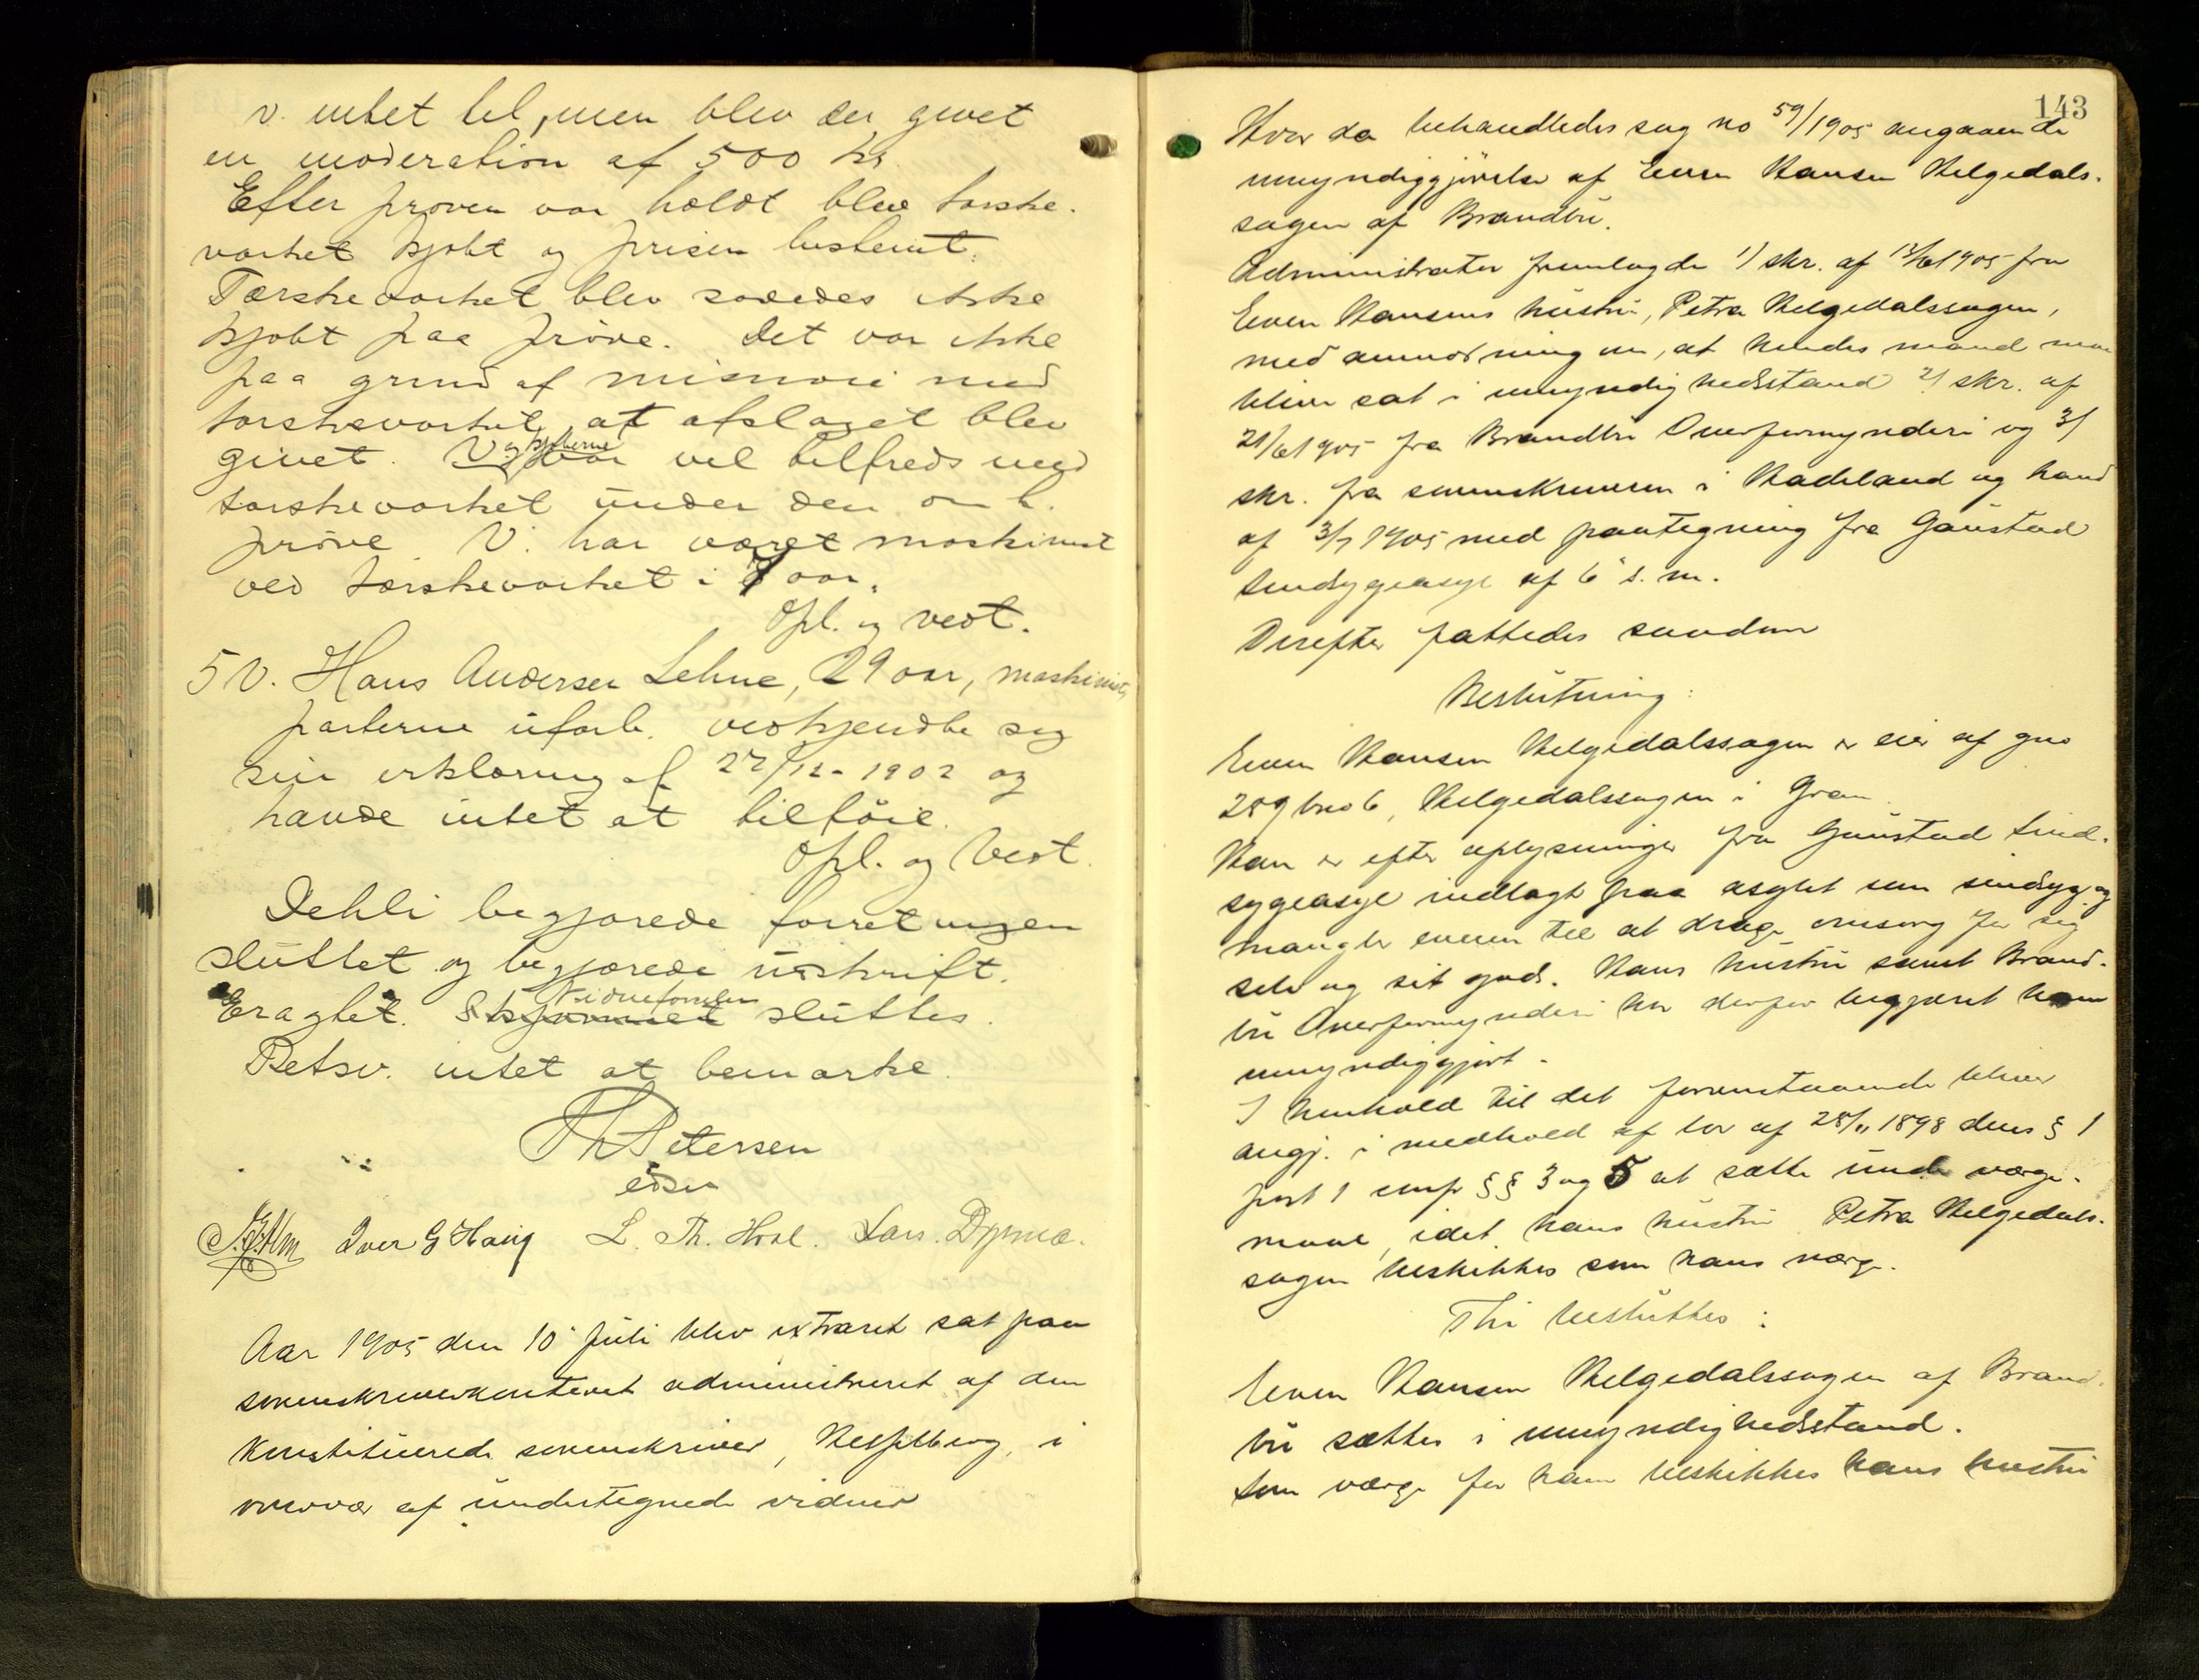 v. intet til, men blev der givet
en moderation af 500 kr
Efter prøven var holdt blev tærske-
værket kjøbt og prisen bestemt.
Tærskeværket blev saaledes ikke
kjøbt paa prøve. Det var ikke
paa grund af misnøie med
tærskeværket, at afslaget blev
givet. V. og kjøberne var vel tilfreds med
tærskeværket under den omh.
prøve. V. har været maskinist
ved tærskeværket i 9 aar.
Opl. og vedt.
5 V. Hans Andersen Lehne, 29 aar, maskinist,
parterne ubesl. vedkjendte sig
sin erklæring af 27/12-1902 og
havde intet at tilføie.
Opl. og Vedt.
Dehli begjærede forretningen
sluttet og begjærede udskrift.
Eragtet. Skjønnet Vidneførslen sluttes.
Retsv. intet at bemærke.
Th Petersen
edsv
Iver G Haug L. Th. Hval. Lars Dynna.
Aar 1905 den 10 Juli blev extraret sat paa
sorenskriverkontoret administreret af den
konstituerede sorenskriver, Hesselberg, i
overvær af undertegnede vidner
143
Hvor da behandledes sag no 59/1905 angaaende
umyndiggjørelse af Even Hansen Helgedals-
sagen af Brandbu.
Administrator fremlagde 1) skr. af 12/6 1905 fra
Even Hansens hustru, Petra Helgedalssagen,
med anmodning om, at hendes mand maa
blive sat i umyndighedsstand 2) skr. af
21/6 1905 fra Brandbu Overformynderi og 3)
skr. fra sorenskriveren i Hadeland og Land
af 3/7 1905 med paategning fra Gaustad
Sindsygeasyl af 6 s. m.
Derefter fattedes saadan
Beslutning:
Even Hansen Helgedalssagen er eier af gno
289 bno 6, Helgedalssagen i Gran.
Han er efter oplysninger fra Gaustad Sind-
sygeasyl indlagt paa asylet som sindsyg og
mangler evnen til at drage omsorg for sig
selv og sit gods. Hans hustru samt Brand-
bu Overformynderi har derfor begjæret ham
umyndiggjort.
I henhold til det foranstaaende bliver
angj. i medhold af lov af 28/11 1898 dens § 1
post 1 cmfr §§ 3 og 5 at sætte under værge-
maal, idet hans hustru Petra Helgedals-
sagen beskikkes som hans værge.
Thi besluttes:
Even Hansen Helgedalssagen af Brand-
bu sættes i umyndighedsstand.
Som værge for ham beskikkes hans hustru